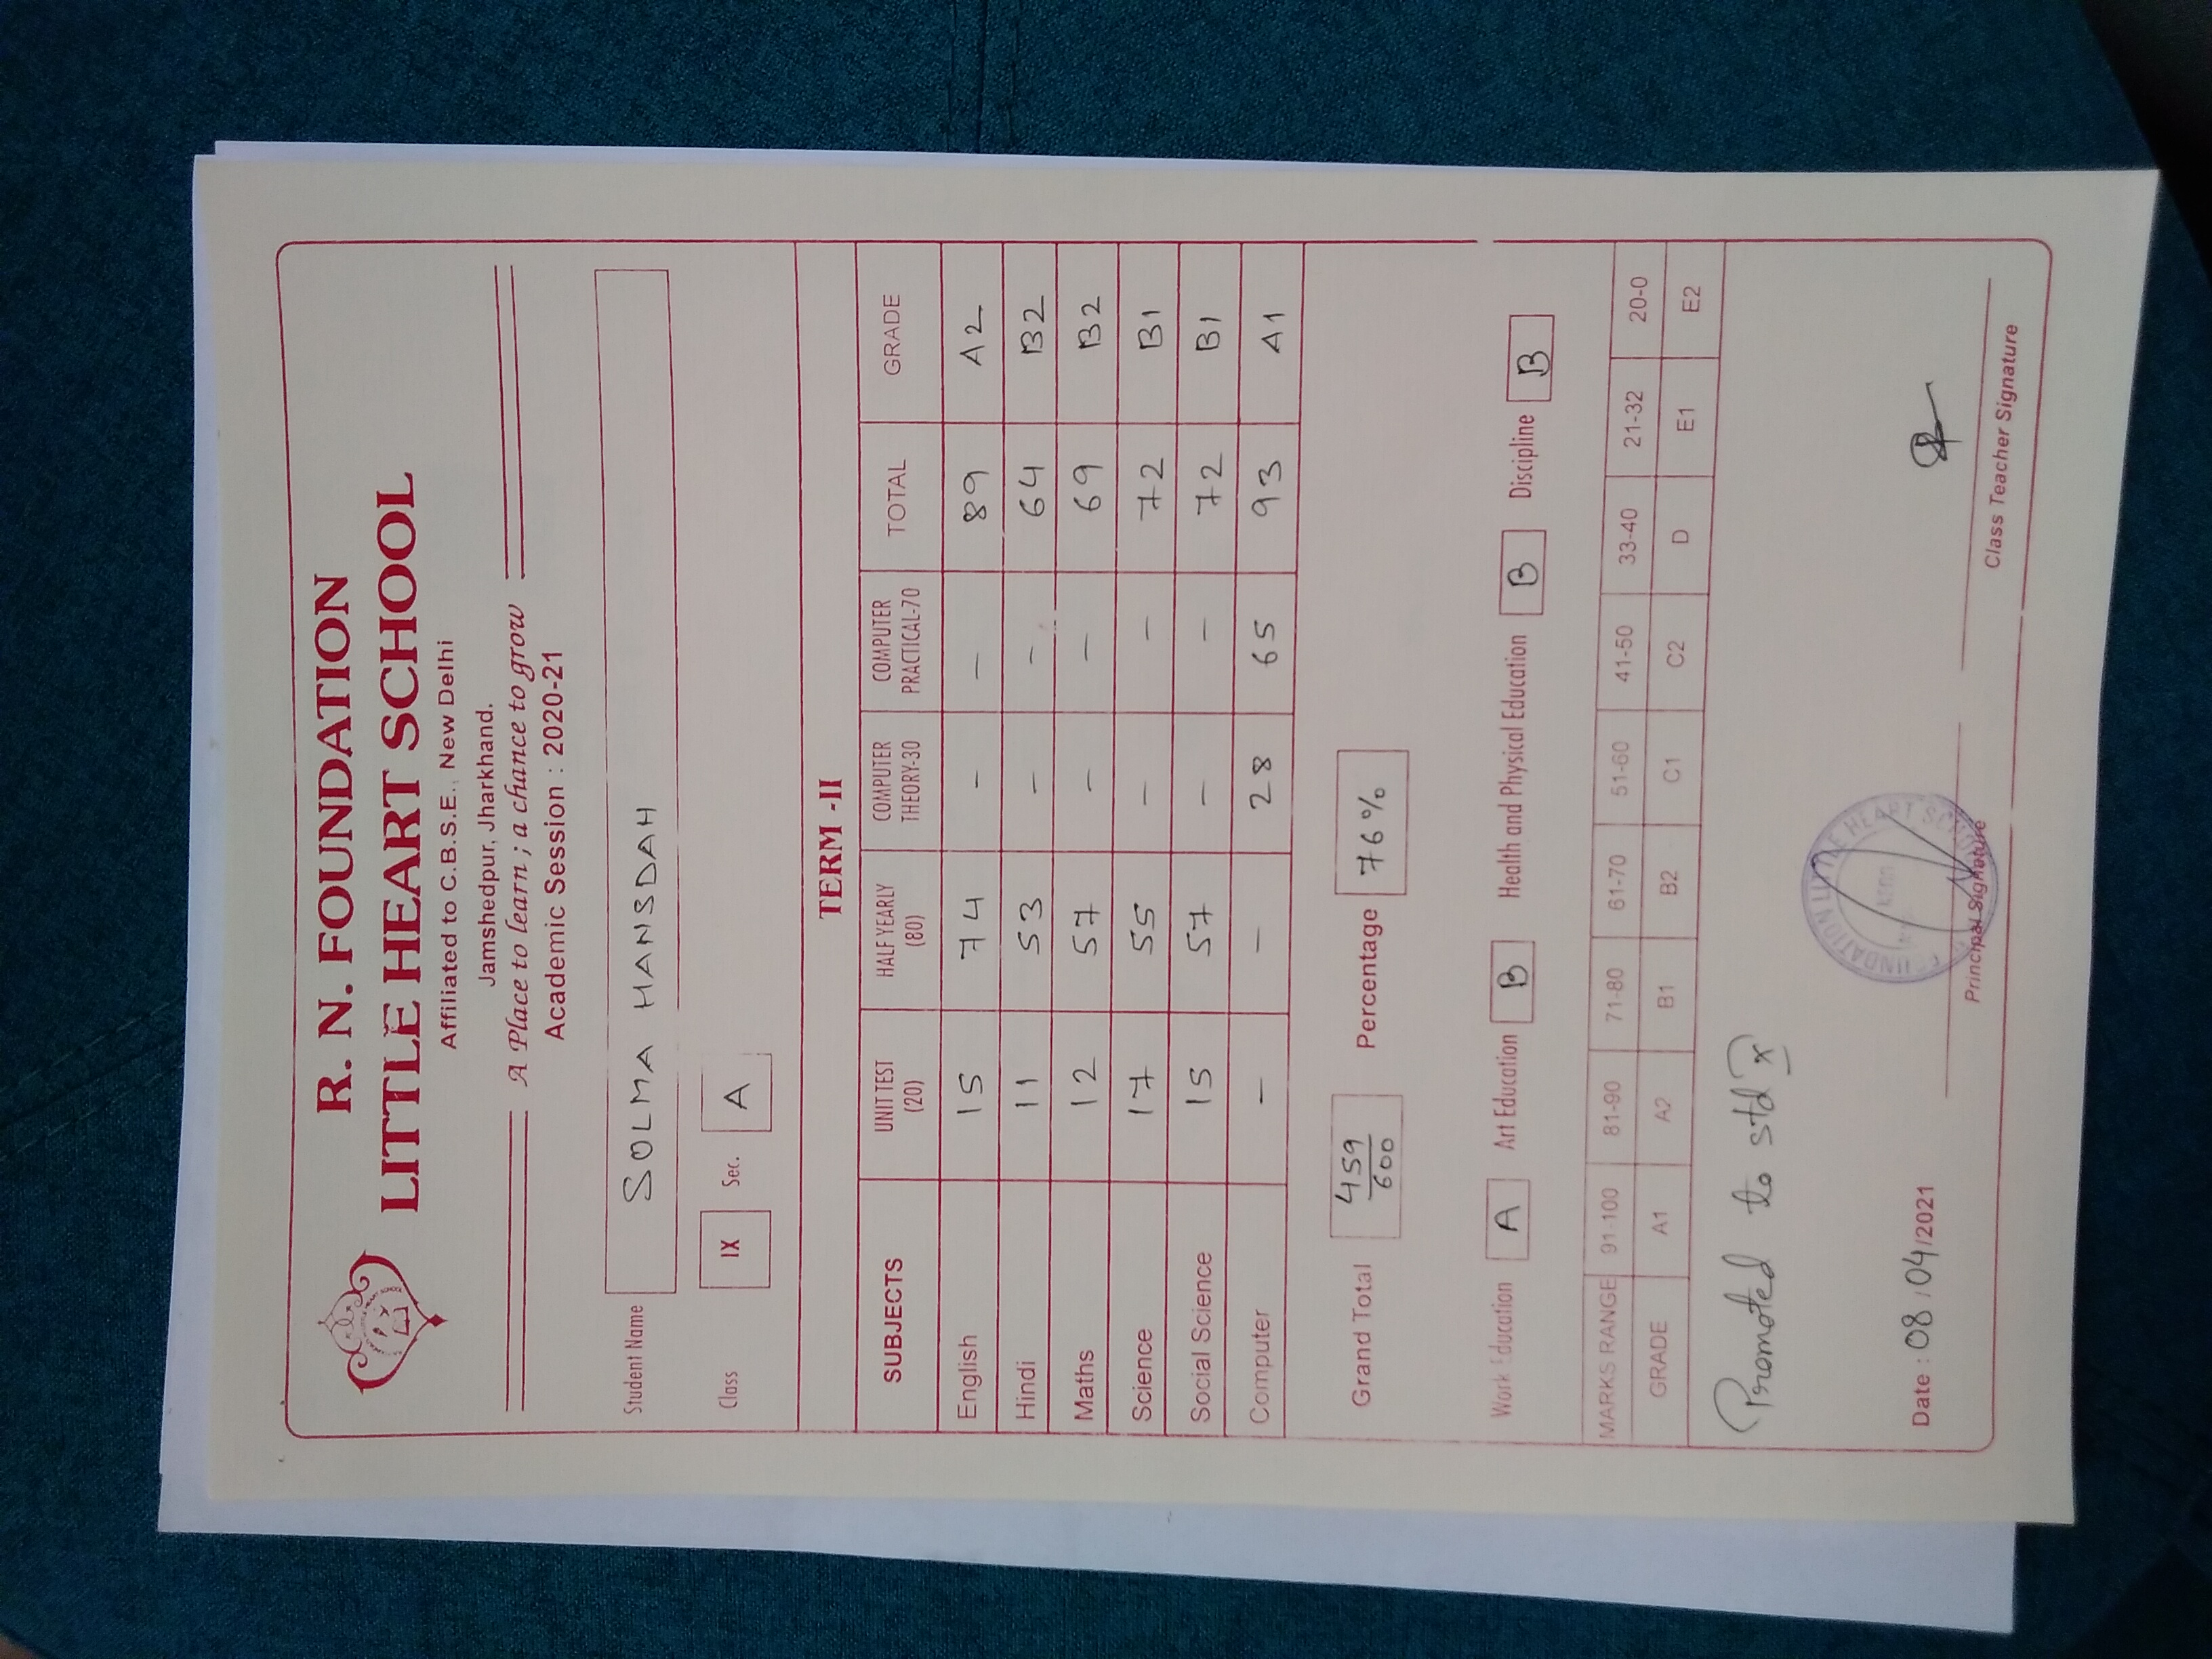 R. N. FOUNDATION
LITTLE HEART SCHOOL
Affiliated to C.B.S.E., New Delhi
Jamshedpur, Jharkhand.
A Place to learn ; a chance to grow
Academic Session : 2020-21
Student Name SOLMA HANSDAH
Class IX Sec. A
TERM -II
SUBJECTS UNIT TEST (20) HALF YEARLY (80) COMPUTER THEORY-30 COMPUTER PRACTICAL-70 TOTAL GRADE
English 15 74 - - 89 A2
Hindi 11 53 - - 64 B2
Maths 12 57 - - 69 B2
Science 17 55 - - 72 B1
Social Science 15 57 - - 72 B1
Computer - - 28 65 93 A1
Grand Total 459/600 Percentage 76%
Work Education A Art Education B Health and Physical Education B Discipline B
MARKS RANGE 91-100 81-90 71-80 61-70 51-60 41-50 33-40 21-32 20-0
GRADE A1 A2 B1 B2 C1 C2 D E1 E2
Promoted to std X
FOUNDATION LITTLE HEART SCHOOL
Date : 08/04/2021
Principal Signature
Class Teacher Signature